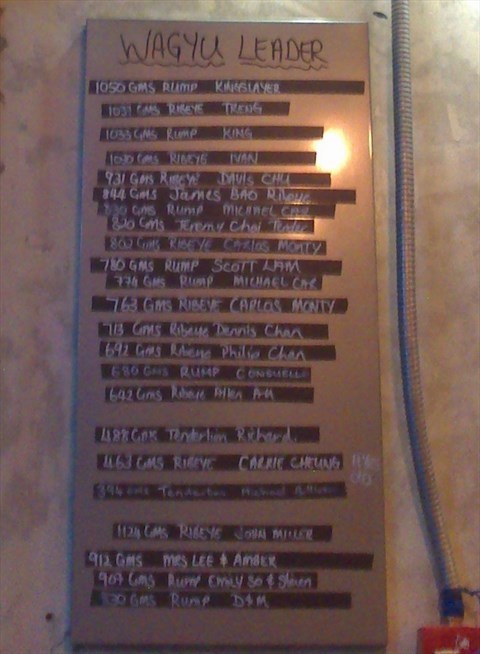 WAGYU LEADER
1050 GMS RUMP KINGSLAYER
1031 GMS RIBEYE TRENG
1033 GMS RUMP KING
1030 GMS RIBEYE IVAN
931 GMS RIBEYE DAVIS CHU
844 GMS James BAO Ribeye
830 GMS RUMP MICHAEL
GMS Jeremy Choi Tender
802 GMS RIBEYE CARLOS MONTY
780 GMS RUMP SCOTT LAM
774 GMS RUMP MICHAEL
763 GMS RIBEYE CARLOS MONTY
713 GMS Ribeye Dennis Chan
692 Gms Ribeye Philip Chan
680 GMS RUMP
642 Gms Ribeye Allen
488 Gms Tenderloin Richard.
463 GMS RIBEYE CARRIE CHEUNG
GMS Tenderloin Michael
1124 GMS RIBEYE JOHN MILLER
912 GMS MRS LEE & AMBER
907 GMS Rump Emily So &
830 GMS RUMP D&M